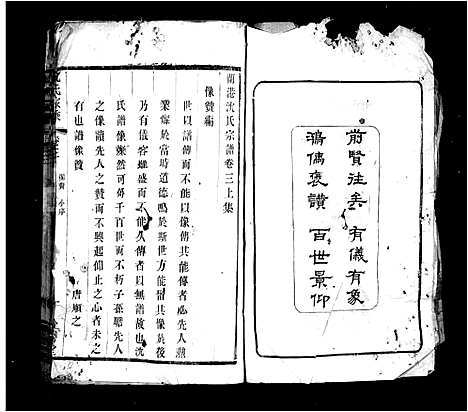 前賢往矣 有儀有象
鴻儒褒讚 百世景仰
蘭港沈氏宗譜卷三上集
像贊
世以譜傳而不能以像傳其能傳者必先人勳
業爛於當時道德鳴於斯世方能留其像於後
乃有儀容雖盛而不能久傳者以無譜故也沈
氏譜像燦然可傳千百世而不朽子孫瞻先人
之像讀先人之贊而不興起仰止之心者未之
有也譜像贊
唐順之
像贊 小序